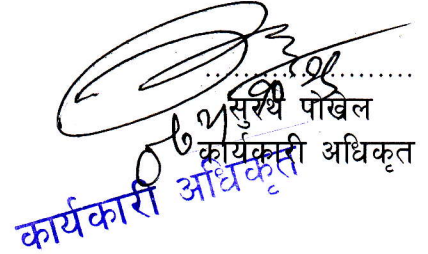 ....................
सुरथ पोखेल
कार्यकारी अधिकृत
कार्यकारी अधिकृत